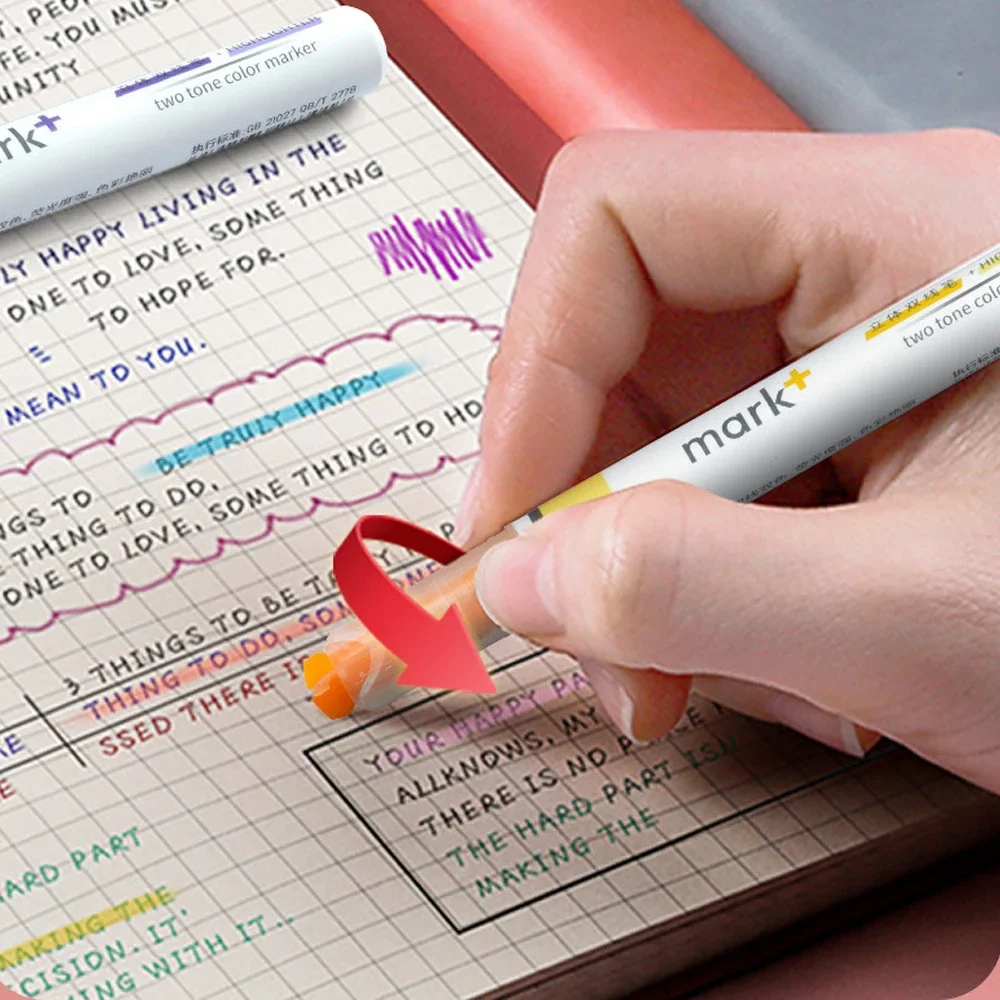 FE. YOU MUST
UNITY
two tone color marker
rk+
执行标准:GB 21027 QB/T 2778
LY HAPPY LIVING IN THE
ONE TO LOVE, SOME THING
TO HOPE FOR.
MEAN TO YOU.
BE TRULY HAPPY
NGS TO
THING TO DO,
ONE TO LOVE, SOME THING TO HO
立体双线笔 + HIG
two tone colo
mark+
3 THINGS TO BE
THING TO DO, SOM
SSED THERE IS
YOUR HAPPY PA
ALLKNOWS, MY
THERE IS NO
THE HARD PART ISN
MAKING THE
ARD PART
MAKING THE
ECISION. IT'
ING WITH IT..